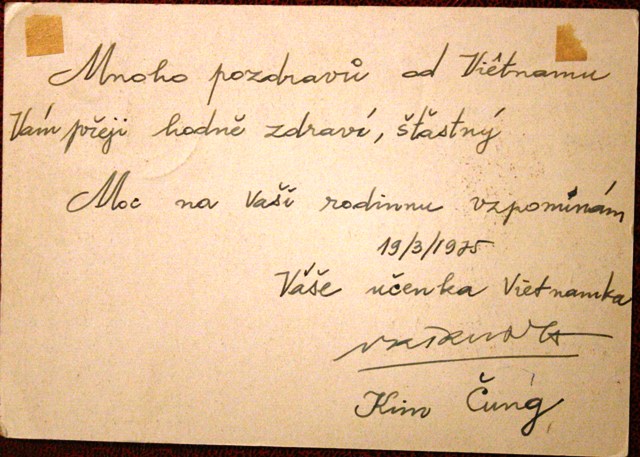 Mnoho pozdravů od Viêtnamu
Vám přeji hodně zdraví, šťastný
Moc na Vaší rodinnu vzpomínám
19/3/1975
Váše učenka Viêtnamka
Kim Čung